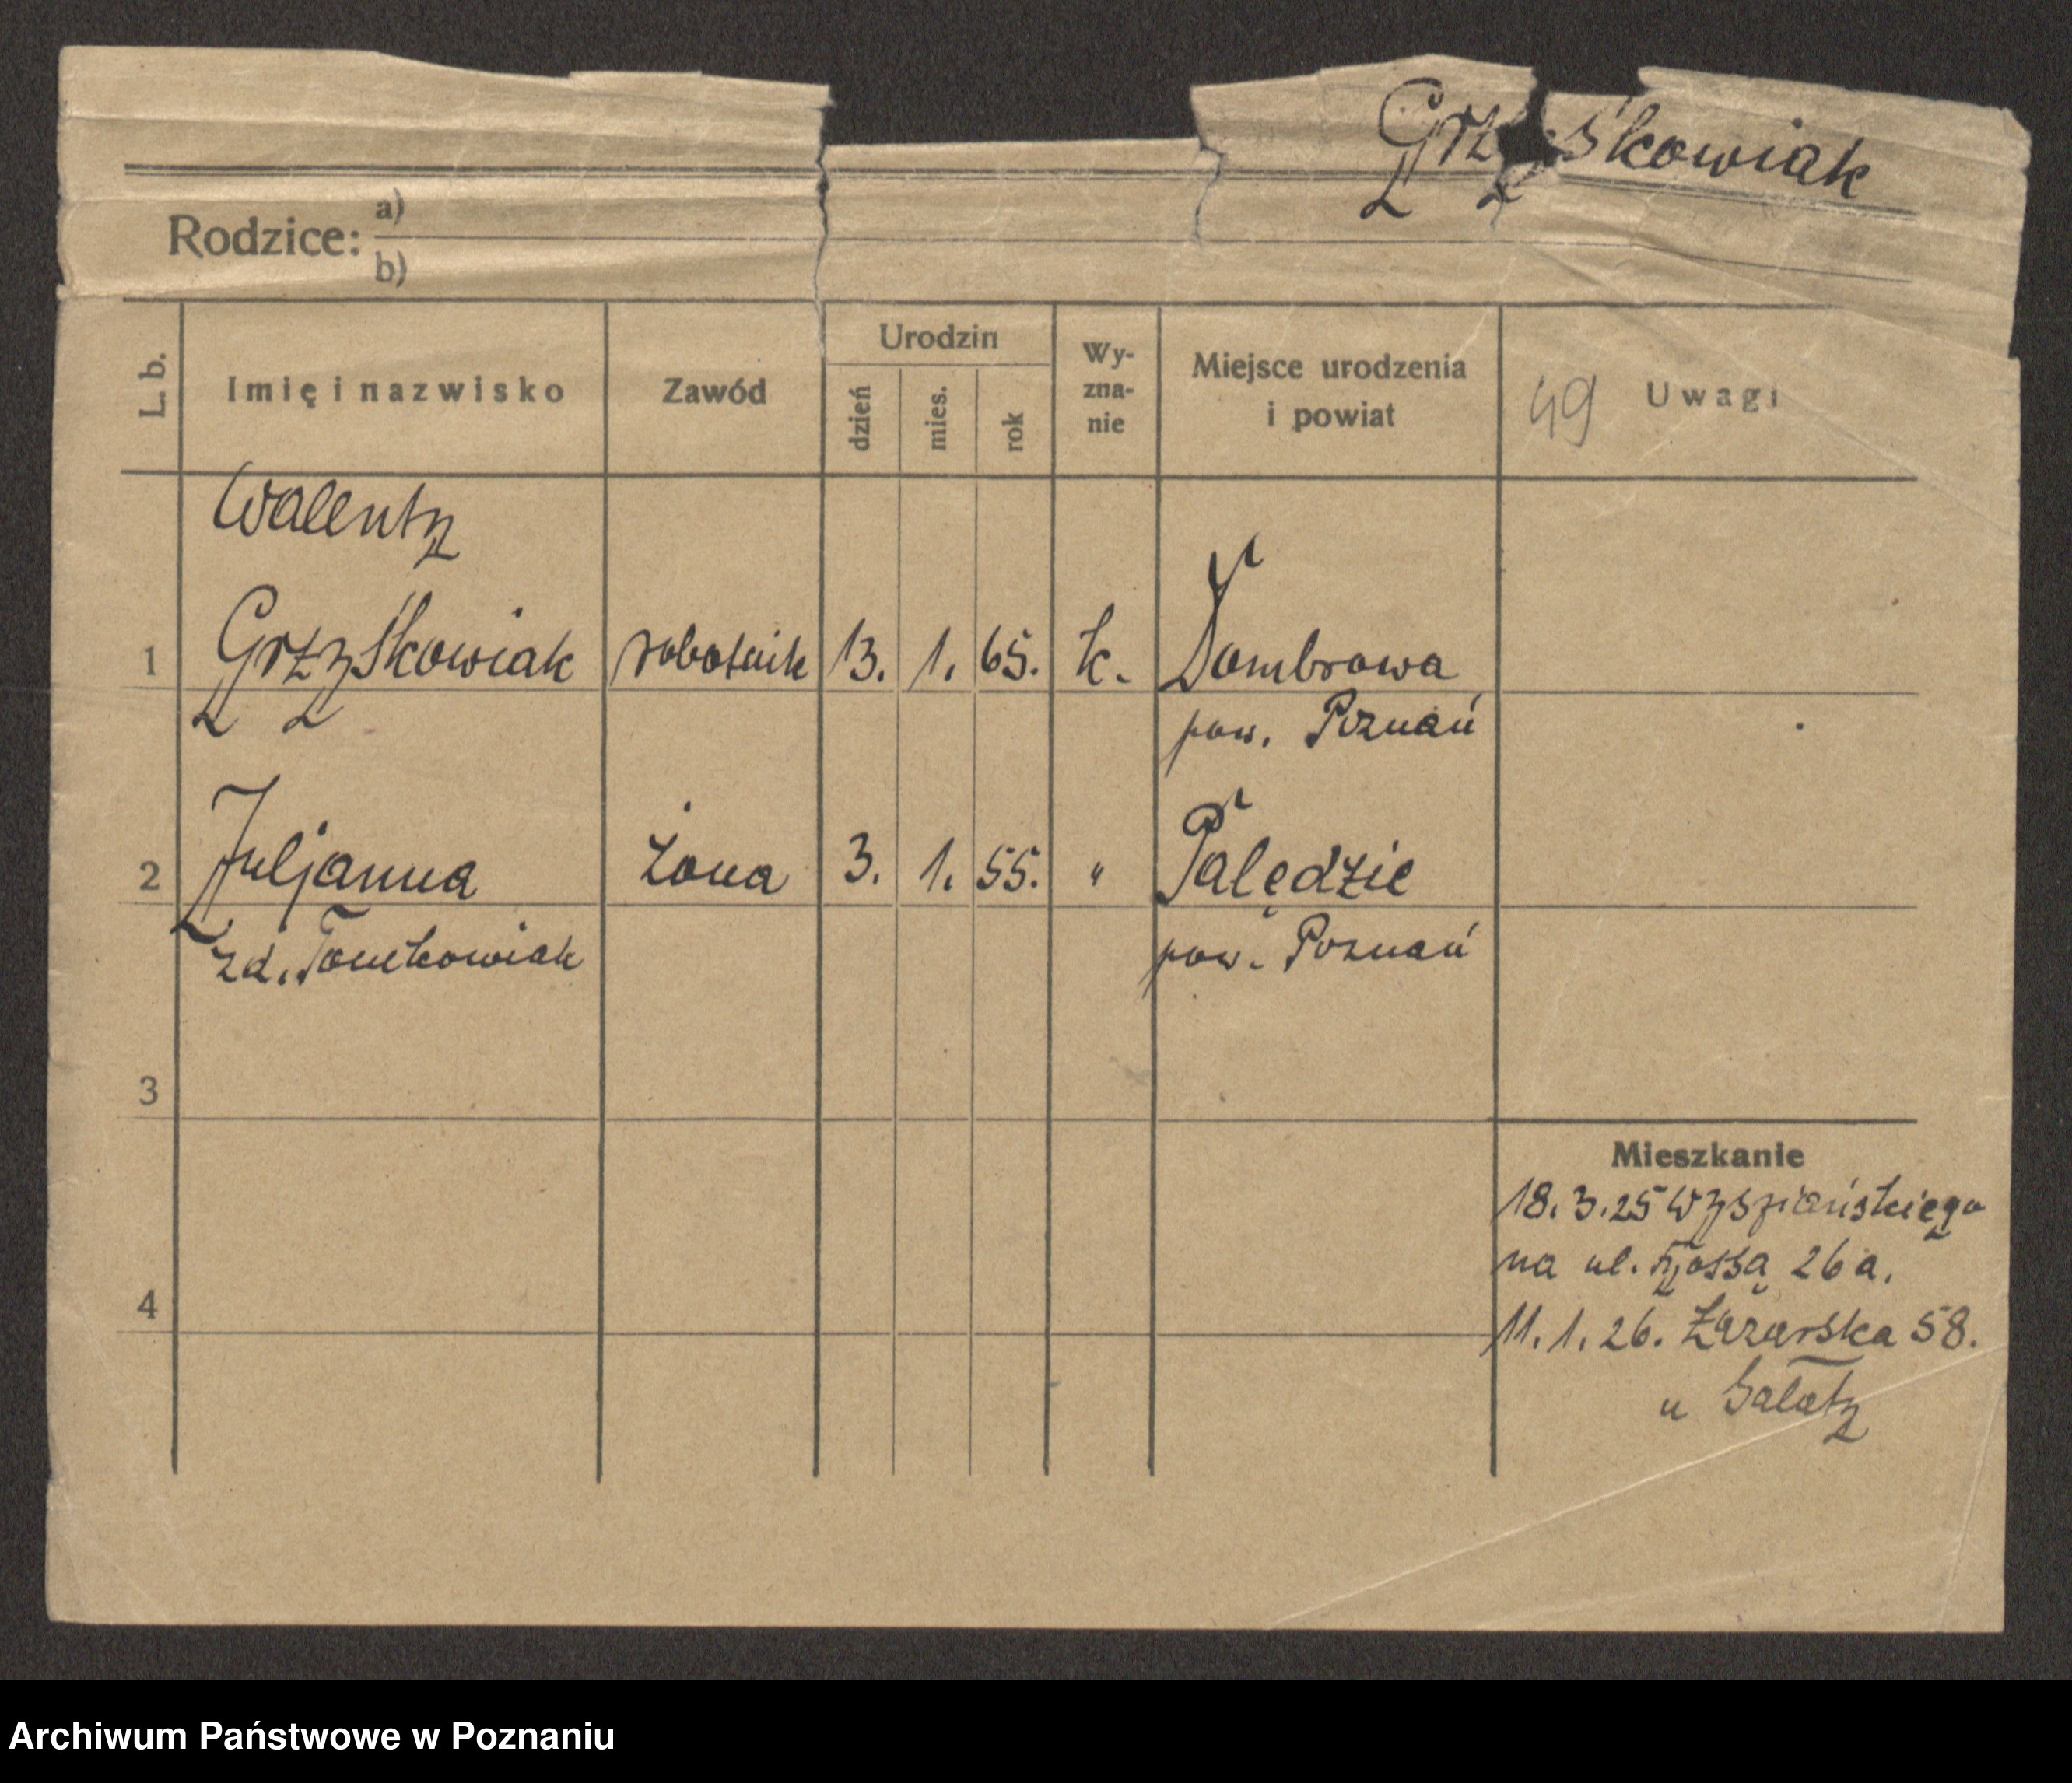 Grzyśkowiak
Rodzice: a)
b)
L. b. Imię i nazwisko Zawód Urodzin dzień mies. rok Wy-zna-nie Miejsce urodzenia i powiat 49 Uwagi
Walenty
1 Grzyśkowiak robotnik 13. 1. 65. k. Dombrowa
pow. Poznań
2 Juljanna żona 3. 1. 55. " Palędzie
zd. Tomkowiak pow. Poznań
3
Mieszkanie
18.3.25 Wyspiańskiego
na ul. 26a.
4
11.1.26. Łazarska 58.
u
Archiwum Państwowe w Poznaniu